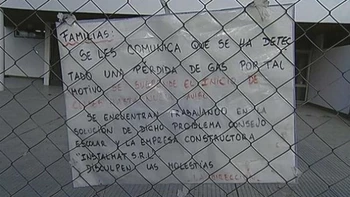 FAMILIAS:
SE LES COMUNICA QUE SE HA DETEC
TADO UNA PÉRDIDA DE GAS POR TAL
MOTIVO SE EL INICIO DE
SE ENCUENTRAN TRABAJANDO EN LA
SOLUCIÓN DE DICHO PROBLEMA CONSEJO
ESCOLAR Y LA EMPRESA CONSTRUCTORA
S.R.L.
DISCULPEN LAS MOLESTIAS
LA DIRECCIÓN